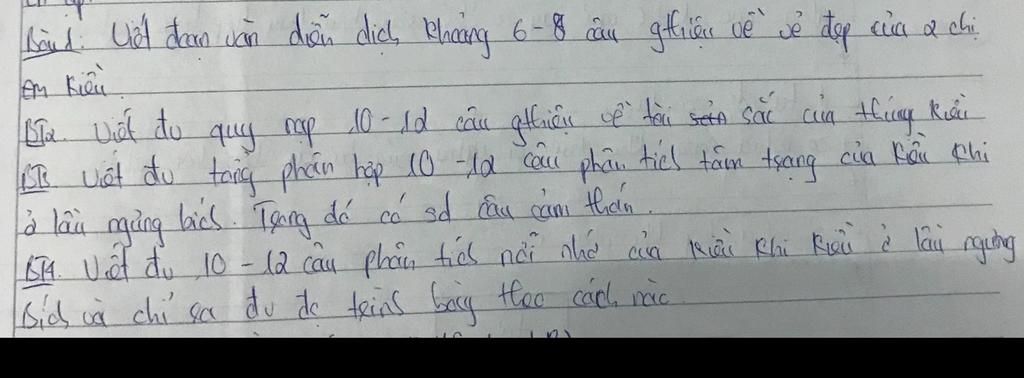 Bài 1: Viết đoạn văn diễn dịch khoảng 6-8 câu gthiệu về vẻ đẹp của 2 chị
em Kiều.
BT2. Viết đv quy nạp 10-12 câu gthiệu về tài sắc của Thúy Kiều
BT3. Viết đv tổng phân hợp 10-12 câu phân tích tâm trạng của Kiều khi
ở lầu ngưng bích. Trong đó có sd câu cảm thán.
BT4. Viết đv 10-12 câu phân tích nỗi nhớ của Kiều khi Kiều ở lầu ngưng
bích và chỉ ra đv đc trình bày theo cách nào.